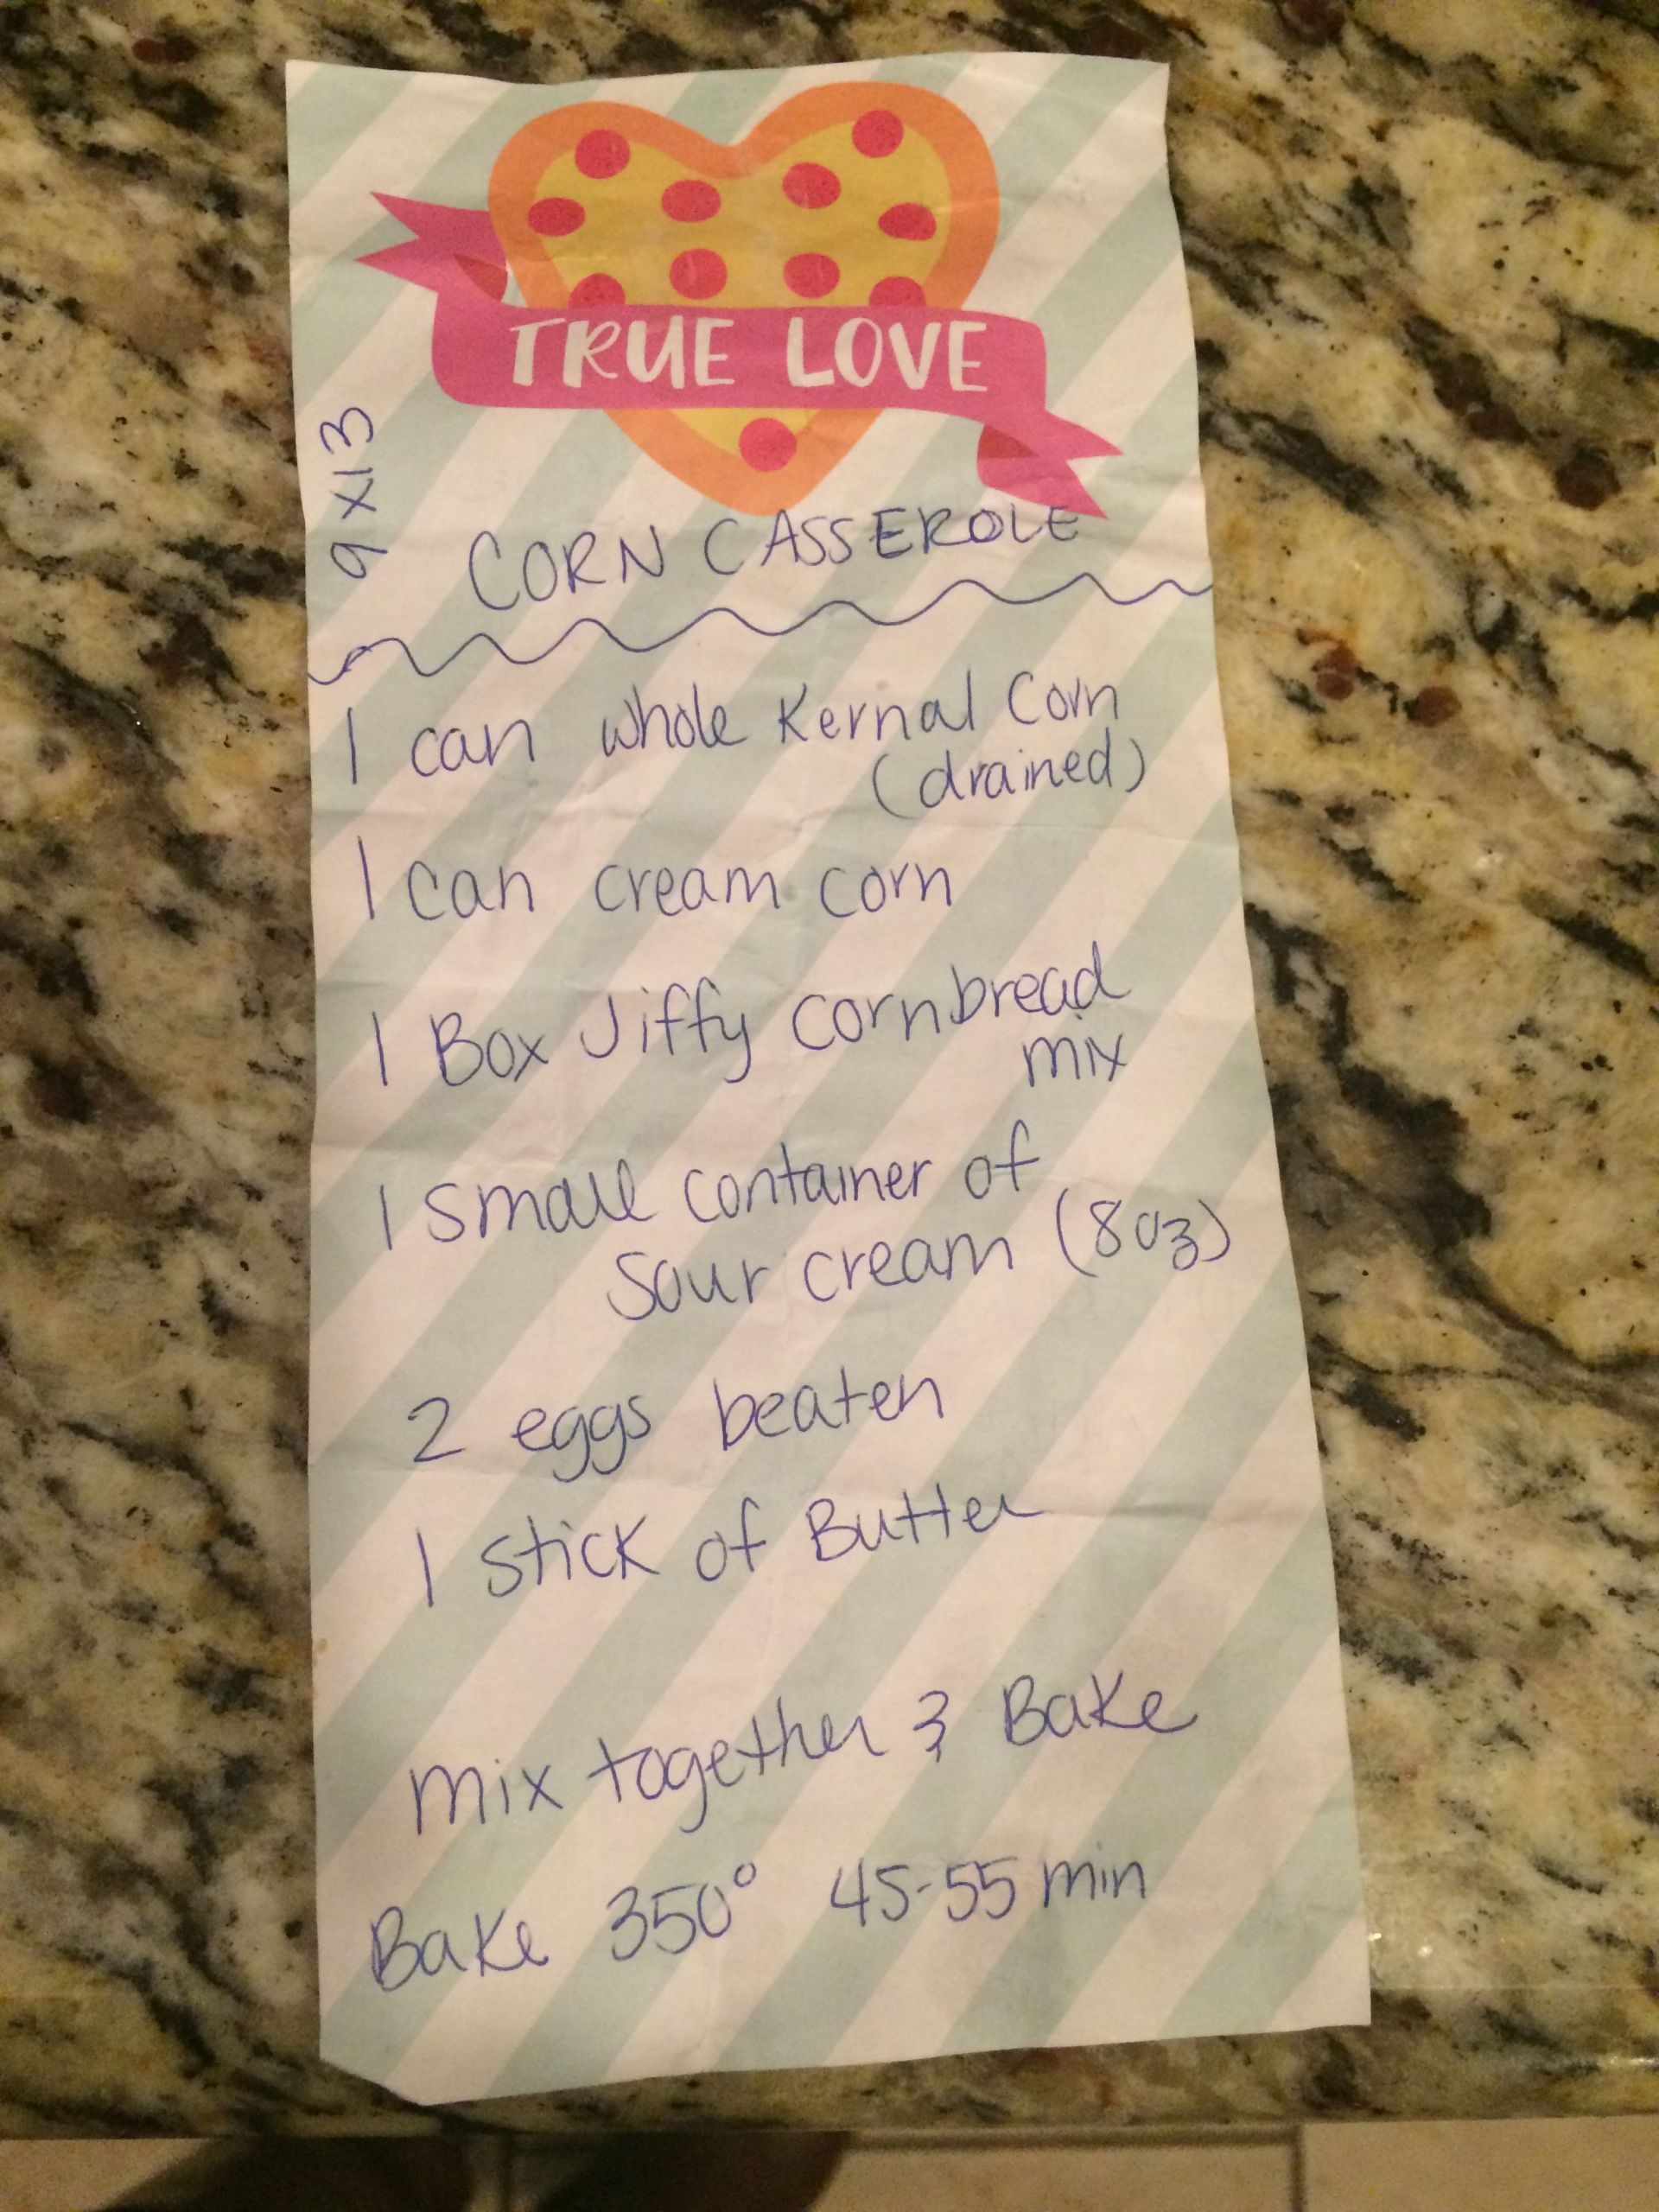 TRUE LOVE
9x13
CORN CASSEROLE
1 can whole Kernal Corn
(drained)
1 can cream corn
1 Box Jiffy cornbread
mix
1 small container of
Sour cream (8 oz)
2 eggs beaten
1 stick of Butter
Mix together & Bake
Bake 350° 45-55 min